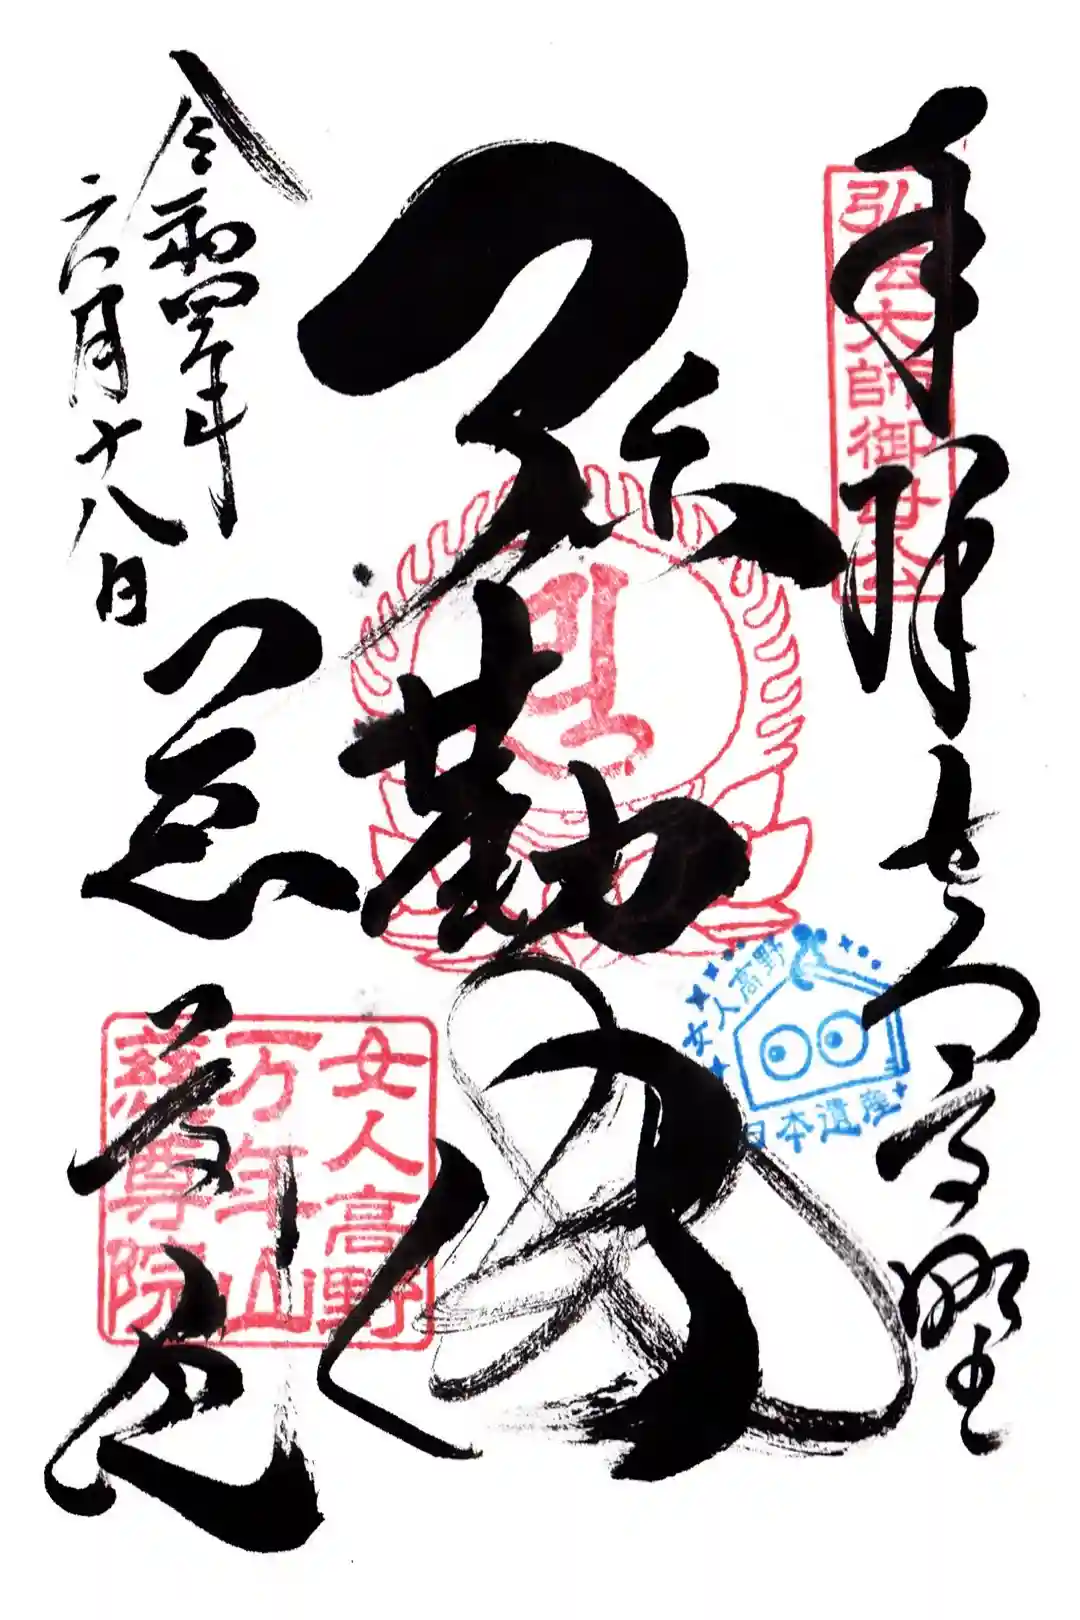 奉拜
女人高野
弘法大師御母公
弥勒佛
女人高野
日本遺産
令和四年
六月十八日
慈尊院
女人高野
万年山
慈尊院